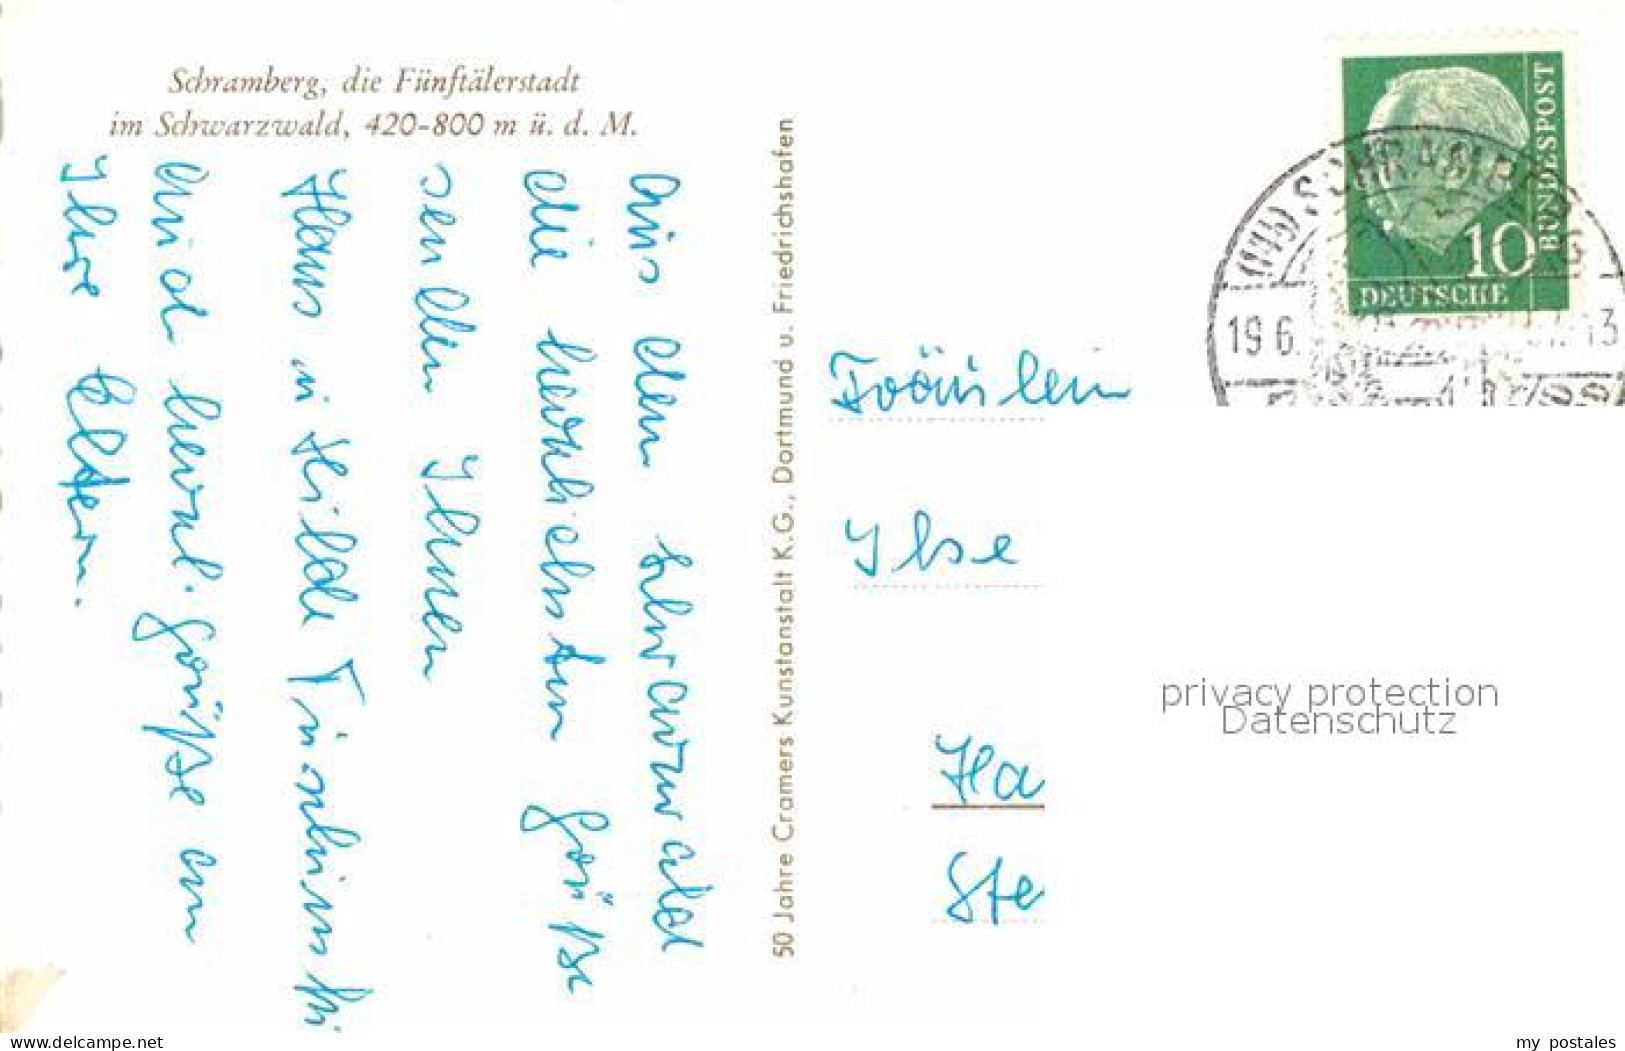 Schramberg, die Fünftälerstadt
im Schwarzwald, 420-800 m ü. d. M.
Aus dem Schwarzwald
die herzlichsten Grüße
senden Ihnen
Hans u. Hilde
und herzl. Grüße an
Ihre Eltern.
50 Jahre Cramers Kunstanstalt K.G., Dortmund u. Friedrichshafen
BUNDESPOST
10
DEUTSCHE
SCHRAMBERG
19.6.
13
Fräulein
Ilse
Ha
Ste
privacy protection
Datenschutz
www.delcampe.net
my_postales